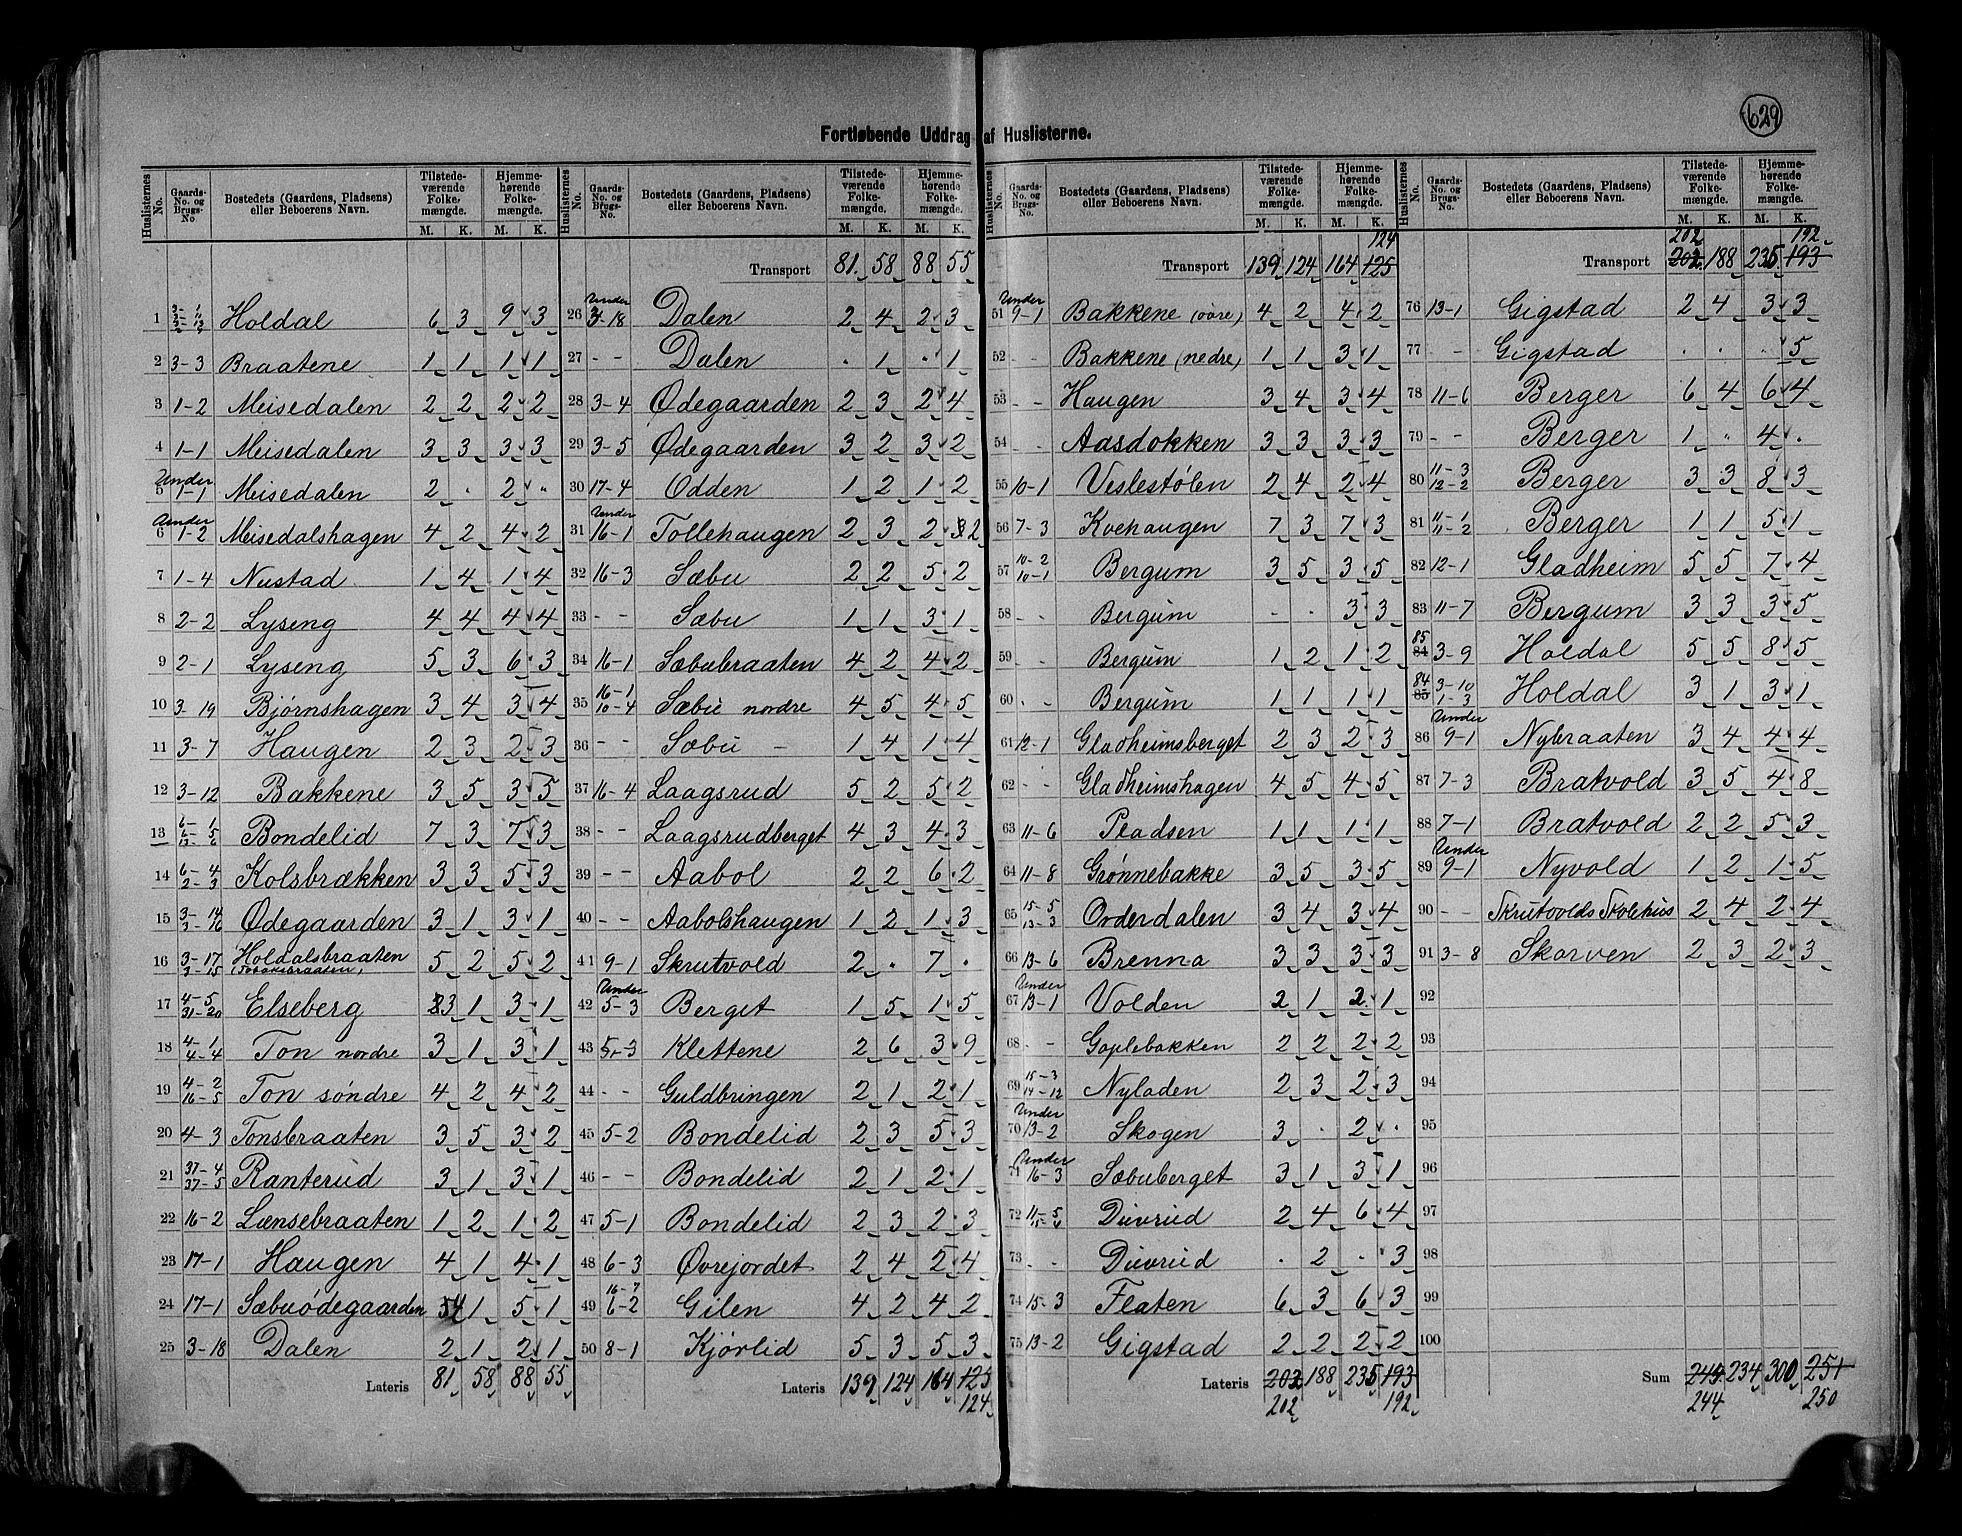 629
Fortløbende Uddrag af Huslisterne.
Huslisternes No. | Gaards-No. og Brugs-No | Bostedets (Gaardens, Pladsens) eller Beboerens Navn. | Tilstedeværende Folkemængde. M. K. | Hjemmehørende Folkemængde. M. K.
1 Holdal 6 3 9 3
2 3-3 Braatene 1 1 1 1
3 1-2 Meisedalen 2 2 2 2
4 1-1 Meisedalen 3 3 3 3
5 Under 1-1 Meisedalen 2 . 2 .
6 Under 1-2 Meisedalshagen 4 2 4 2
7 1-4 Nustad 1 4 1 4
8 2-2 Lyseng 4 4 4 4
9 2-1 Lyseng 5 3 6 3
10 3-19 Bjørnshagen 3 4 3 4
11 3-7 Haugen 2 3 2 3
12 3-12 Bakkene 3 5 3 5
13 6-1 6-5 Bondelid 7 3 7 3
14 6-4 2-3 Kolsbrækken 3 3 5 3
15 3-14 3-16 Ødegaarden 3 1 3 1
16 3-17 3-15 Holdalsbraaten 5 2 5 2
17 4-5 31-20 Elseberg 3 1 3 1
18 4-1 4-4 Ton nordre 3 1 3 1
19 4-2 16-5 Ton søndre 4 2 4 2
20 4-3 Tonsbraaten 3 5 3 2
21 37-4 37-5 Ranterud 3 1 3 1
22 16-2 Lænsebraaten 1 2 1 2
23 17-1 Haugen 4 1 4 1
24 17-1 Sæbuødegaarden 4 1 5 1
25 3-18 Dalen 2 1 2 1
Lateris 81 58 88 55
Huslisternes No. | Gaards-No. og Brugs-No | Bostedets (Gaardens, Pladsens) eller Beboerens Navn. | Tilstedeværende Folkemængde. M. K. | Hjemmehørende Folkemængde. M. K.
Transport 81 58 88 55
26 Under 3-18 Dalen 2 4 2 3
27 - - Dalen . 1 . 1
28 3-4 Ødegaarden 2 3 2 4
29 3-5 Ødegaarden 3 2 3 2
30 17-4 Odden 1 2 1 2
31 Under 16-1 Tollehaugen 2 3 2 3 2
32 16-3 Sæbu 2 2 5 2
33 - - Sæbu 1 1 3 1
34 16-1 Sæbubraaten 4 2 4 2
35 16-1 10-4 Sæbu nordre 4 5 4 5
36 - - Sæbu - 1 4 1 4
37 16-4 Laagsrud 5 2 5 2
38 - - Laagsrudberget 4 3 4 3
39 - - Aabol 2 2 6 2
40 - - Aabolshaugen 1 2 1 3
41 9-1 Skrutvold 2 . 7 .
42 Under 5-3 Berget 1 5 1 5
43 5-3 Klettene 2 6 3 9
44 - - Guldbringen 2 1 2 1
45 5-2 Bondelid 2 3 5 3
46 - - Bondelid 2 1 2 1
47 5-1 Bondelid 2 3 2 3
48 6-3 Øvrejordet 2 4 2 4
49 16-7 6-2 Gilen 4 2 4 2
50 8-1 Kjørlid 5 3 5 3
Lateris 139 124 164 125
124
Huslisternes No. | Gaards-No. og Brugs-No. | Bostedets (Gaardens, Pladsens) eller Beboerens Navn. | Tilstedeværende Folkemængde. M. K. | Hjemmehørende Folkemængde. M. K.
124
Transport 139 124 164 125
51 Under 9-1 Bakkene (øvre) 4 2 4 2
52 - - Bakkene (nedre) 1 1 3 1
53 - - Haugen 3 4 3 4
54 - - Aasdokken 3 3 3 3
55 10-1 Veslestølen 2 4 2 4
56 7-3 Kvehaugen 7 3 7 3
57 10-2 10-1 Bergum 3 5 3 5
58 - - Bergum - . 3 3
59 - - Bergum 1 2 1 2
60 - - Bergum 1 1 1 1
61 12-1 Gladheimsberget 2 3 2 3
62 - - Gladheimshagen 4 5 4 5
63 11-6 Pladsen 1 1 1 1
64 11-8 Grønnebakke 3 5 3 5
65 15-5 13-3 Orderdalen 3 4 3 4
66 13-6 Brenna 3 3 3 3
67 Under 13-1 Volden 2 1 2 1
68 - - Goplebakken 2 2 2 2
69 15-3 14-12 Nyladen 2 3 2 3
70 Under 13-2 Skogen 3 . 2 .
71 Under 16-3 Sæbuberget 3 1 3 1
72 11-5 Duvrud 2 4 6 4
73 - - Duvrud . 2 . 3
74 15-3 Flaten 6 3 6 3
75 13-2 Gigstad 2 2 2 2
Lateris 202 188 235 193
202 192
Huslisternes No. | Gaards-No. og Brugs-No. | Bostedets (Gaardens, Pladsens) eller Beboerens Navn. | Tilstedeværende Folkemængde. M. K. | Hjemmehørende Folkemængde. M. K.
202 192
Transport 202 188 235 193
76 13-1 Gigstad 2 4 3 3
77 - Gigstad . . . 5
78 11-6 Berger 6 4 6 4
79 - - Berger 1 " 4 .
80 11-3 12-2 Berger 3 3 8 3
81 11-1 11-2 Berger 1 1 5 1
82 12-1 Gladheim 5 5 7 4
83 11-7 Bergum 3 3 3 5
85 84 3-9 Holdal 5 5 8 5
84 85 3-10 1-3 Holdal 3 1 3 1
86 Under 9-1 Nybraaten 3 4 4 4
87 7-3 Bratvold 3 5 4 8
88 7-1 Bratvold 2 2 5 3
89 Under 9-1 Nyvold 1 2 1 5
90 - - Skrutvolds Skolehus 2 4 2 4
91 3-8 Skorven 2 3 2 3
92
93
94
95
96
97
98
99
100
Sum 234 300 251
244 250